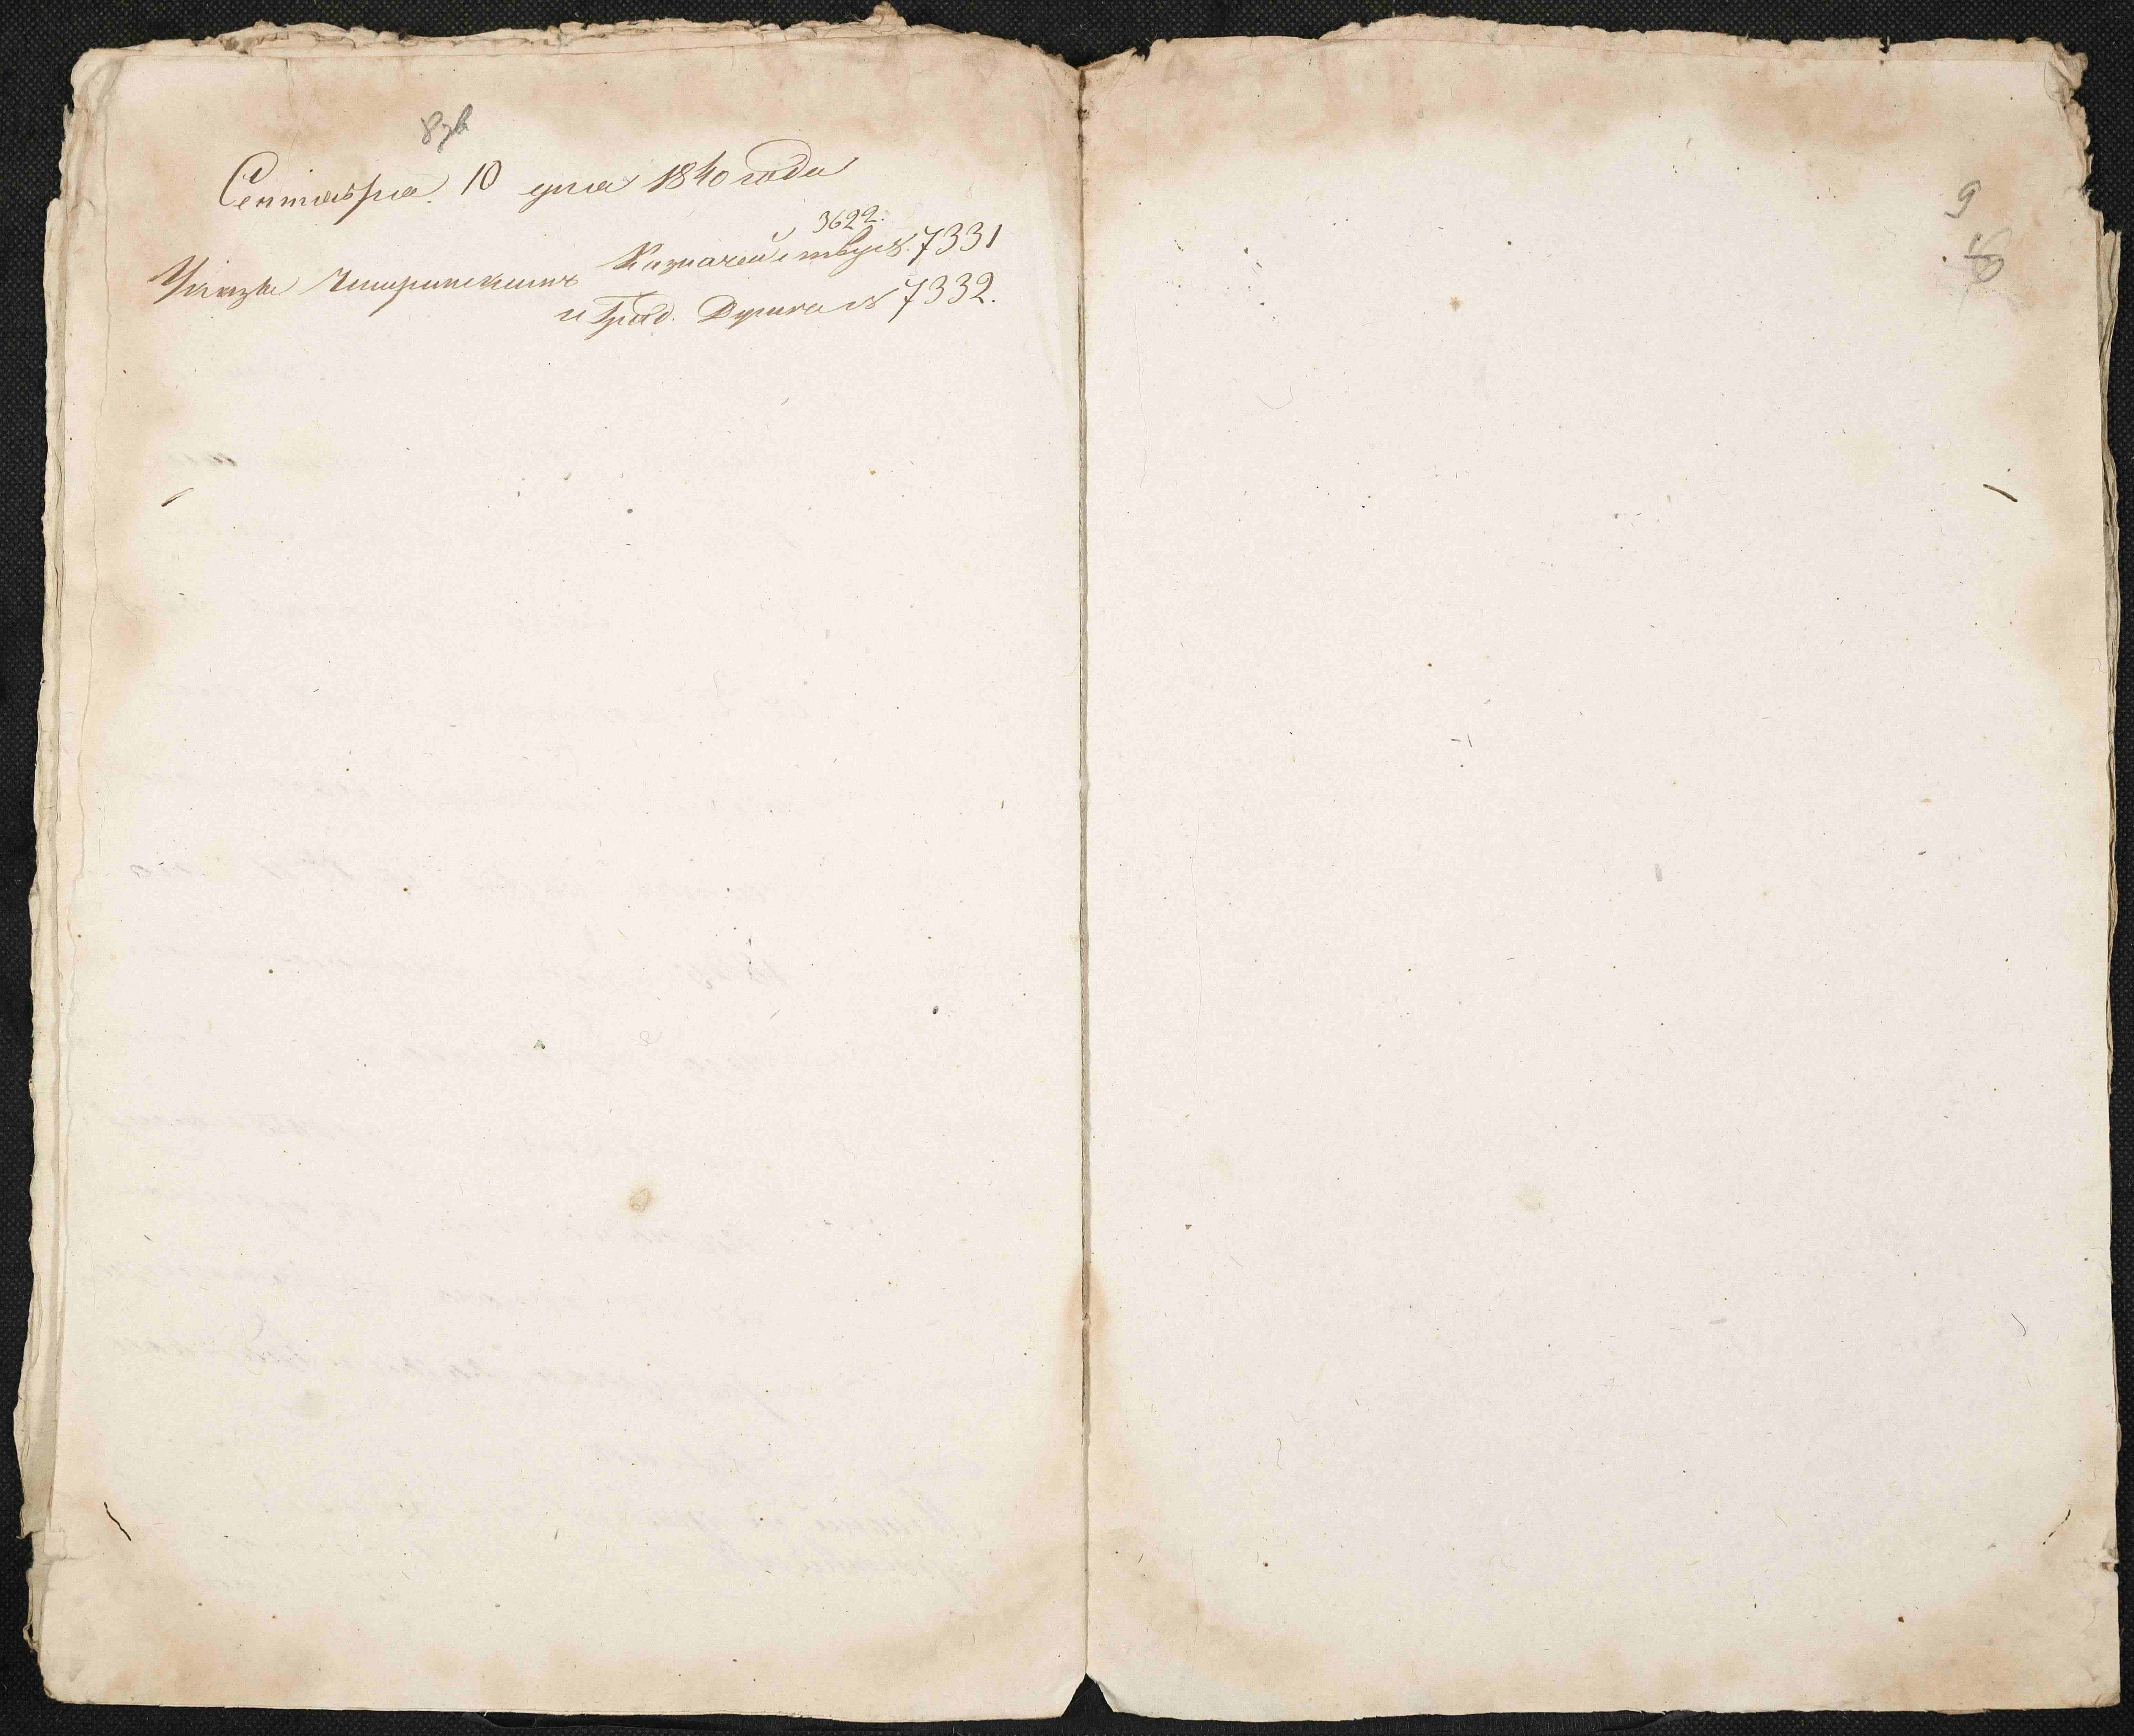 8зв
Сентября 10 дня 1840 года
3622.
Указы Чигиринскимъ Казначейству № 7331
и Град. Думѣ № 7332.
9
8